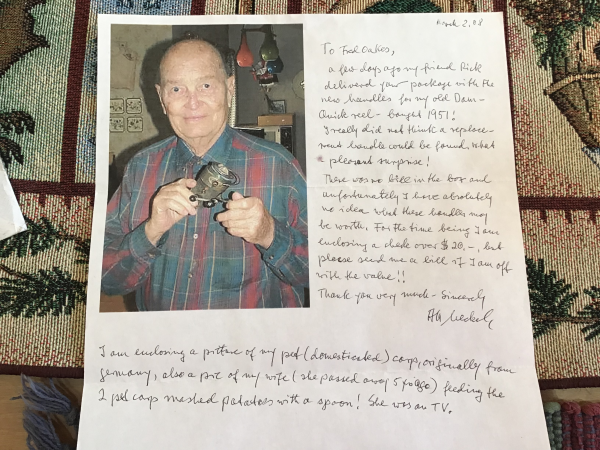 March 2, 08
To Fred Oakes,
a few days ago my friend Rick
deliverd your package with the
new handles for my old Dam-
Quick reel - bought 1951!
I really did not think a replace-
ment handle could be found, what
a pleasant surprise!
There was no bill in the box and
unfortunately I have absolutely
no idea what these handles may
be worth. For the time being I am
enclosing a check over $20,-, but
please send me a bill if I am off
with the value!!
Thank you very much - Sincerely
I am enclosing a picture of my pet (domesticated) carp, originally from
Germany, also a pic of my wife (she passed away 5 yo ago) feeding the
2 pet carp mashed potatoes with a spoon! She was on TV.